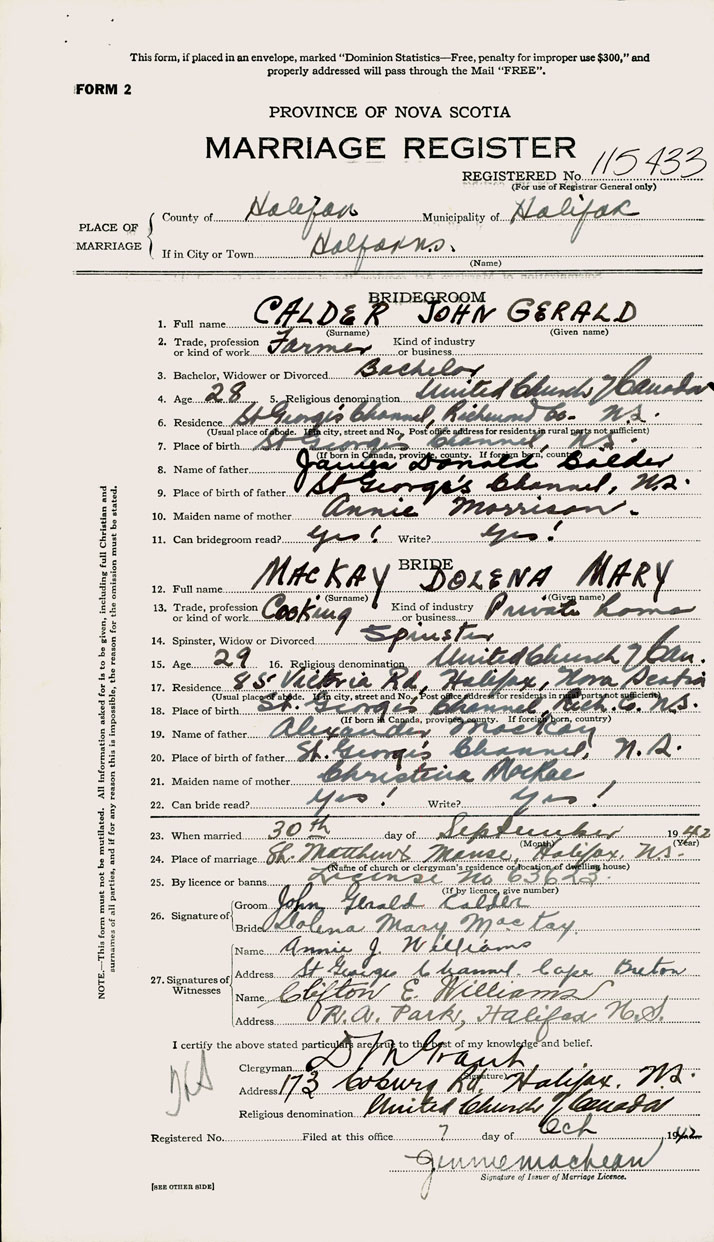 This form, if placed in an envelope, marked "Dominion Statistics—Free, penalty for improper use $300," and
properly addressed will pass through the Mail "FREE".
FORM 2
PROVINCE OF NOVA SCOTIA
MARRIAGE REGISTER
REGISTERED No. 115433
(For use of Registrar General only)
PLACE OF MARRIAGE
County of Halifax Municipality of Halifax
If in City or Town Halifax N.S.
(Name)
BRIDEGROOM
1. Full name CALDER JOHN GERALD
(Surname) (Given name)
2. Trade, profession or kind of work Farmer Kind of industry or business
3. Bachelor, Widower or Divorced Bachelor
4. Age 28 5. Religious denomination United Church of Canada
6. Residence St George's Channel, Richmond Co. N.S.
(Usual place of abode. If in city, street and No. Post office address for residents in rural parts not sufficient)
7. Place of birth St George's Channel, N.S.
(If born in Canada, province, county. If foreign born, country)
8. Name of father James Donald Calder
9. Place of birth of father St George's Channel, N.S.
10. Maiden name of mother Annie Morrison.
11. Can bridegroom read? Yes! Write? Yes!
BRIDE
12. Full name MACKAY DOLENA MARY
(Surname) (Given name)
13. Trade, profession or kind of work Cooking Kind of industry or business Private home
14. Spinster, Widow or Divorced Spinster
15. Age 29 16. Religious denomination United Church of Can.
17. Residence 85 Victoria Rd, Halifax, Nova Scotia
(Usual place of abode. If in city, street and No. Post office address for residents in rural parts not sufficient)
18. Place of birth St. George's Channel, Rich. Co. N.S.
(If born in Canada, province, county. If foreign born, country)
19. Name of father Alexander MacKay
20. Place of birth of father St. George's Channel, N.S.
21. Maiden name of mother Christina McRae
22. Can bride read? Yes! Write? Yes!
23. When married 30th day of September 1942
(Month) (Year)
24. Place of marriage St. Matthew's Manse, Halifax, N.S.
(Name of church or clergyman's residence or location of dwelling house)
25. By licence or banns License No 63623
(If by licence, give number)
26. Signature of
Groom John Gerald Calder
Bride Dolena Mary MacKay
27. Signatures of Witnesses
Name Annie J. Williams
Address St Georges Channel. Cape Breton
Name Clifton E. Williams
Address R.A. Park, Halifax N.S.
I certify the above stated particulars are true to the best of my knowledge and belief.
Clergyman Grant
(Signature)
Address 173 Coburg Rd, Halifax. N.S.
Religious denomination United Church of Canada
Registered No. Filed at this office 7 day of Oct 1942
Jennie
Signature of Issuer of Marriage Licence.
[SEE OTHER SIDE]
NOTE.—This form must not be mutilated. All information asked for is to be given, including full Christian and
surnames of all parties, and if for any reason this is impossible, the reason for the omission must be stated.